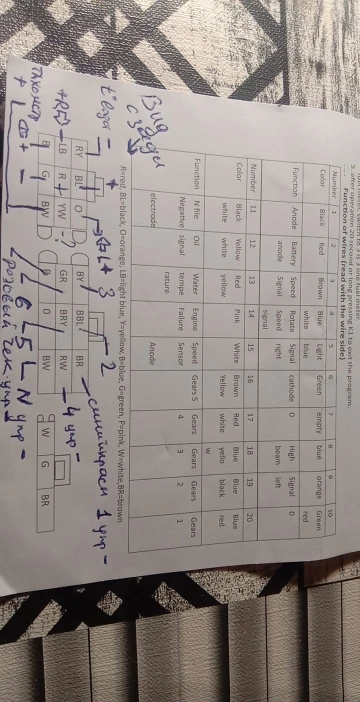 5. under operation 20 second or long pressing K1 to exit the program.
Function of wires (read with the wire side)
Number 1 2 3 4 5 6 7 8 9 10
Color Black Red Brown Blue white Light blue Green empty blue orange Green red
Function Anode Battery anode Speed Signal Rotate Speed signal Signal right cathode 0 High beam Signal left 0
Number 11 12 13 14 15 16 17 18 19 20
Color Black white Yellow white Red yellow Pink White Brown Yellow Red white Blue yello w Blue black Blue red
Function N file Negative electrode Oil Signal Water tempe rature Engine Failure Speed Sensor Anode Gears 5 Gears 4 Gears 3 Gears 2 Gears 1
R=red, BL=black, O=orange, LB=light blue, Y=yellow, B=blue, G=green, P=pink, W=white, BR=brown
Вид
сзади
RY BL O BY BBL BR
LB R YW GR BRY RW
B G BW P O BW W G BR
+ 3
2
синий/красн 1 упр -
4 упр -
L 6 L 5 L N упр -
розовый чек упр -